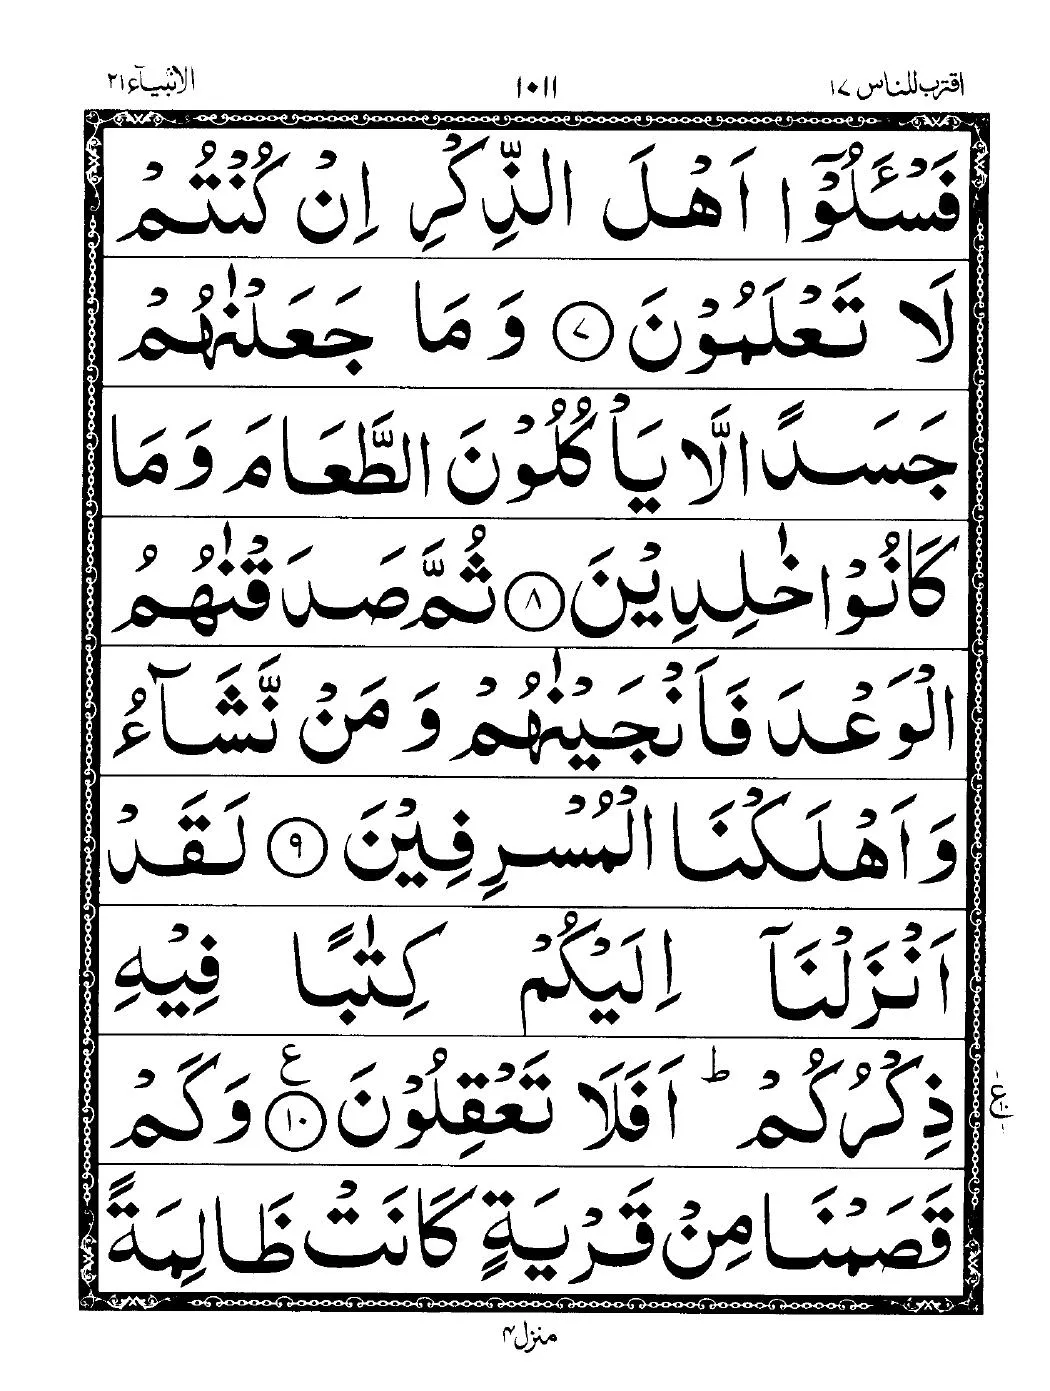 اقترب للناس ١٧ ١٠١١ الانبیآء ٢١
فَسْـَٔلُوْۤا اَهْلَ الذِّكْرِ اِنْ كُنْتُمْ
لَا تَعْلَمُوْنَ ﴿٧﴾ وَ مَا جَعَلْنٰهُمْ
جَسَدًا الَّا يَاْكُلُوْنَ الطَّعَامَ وَ مَا
كَانُوْا خٰلِدِيْنَ ﴿٨﴾ ثُمَّ صَدَقْنٰهُمُ
الْوَعْدَ فَاَنْجَيْنٰهُمْ وَ مَنْ نَّشَآءُ
وَ اَهْلَكْنَا الْمُسْرِفِيْنَ ﴿٩﴾ لَقَدْ
اَنْزَلْنَاۤ اِلَيْكُمْ كِتٰبًا فِيْهِ
ذِكْرُكُمْ ؕ اَفَلَا تَعْقِلُوْنَ ﴿١٠﴾ ع وَ كَمْ
ع ١٠ ١
قَصَمْنَا مِنْ قَرْيَةٍ كَانَتْ ظَالِمَةً
منزل ۴